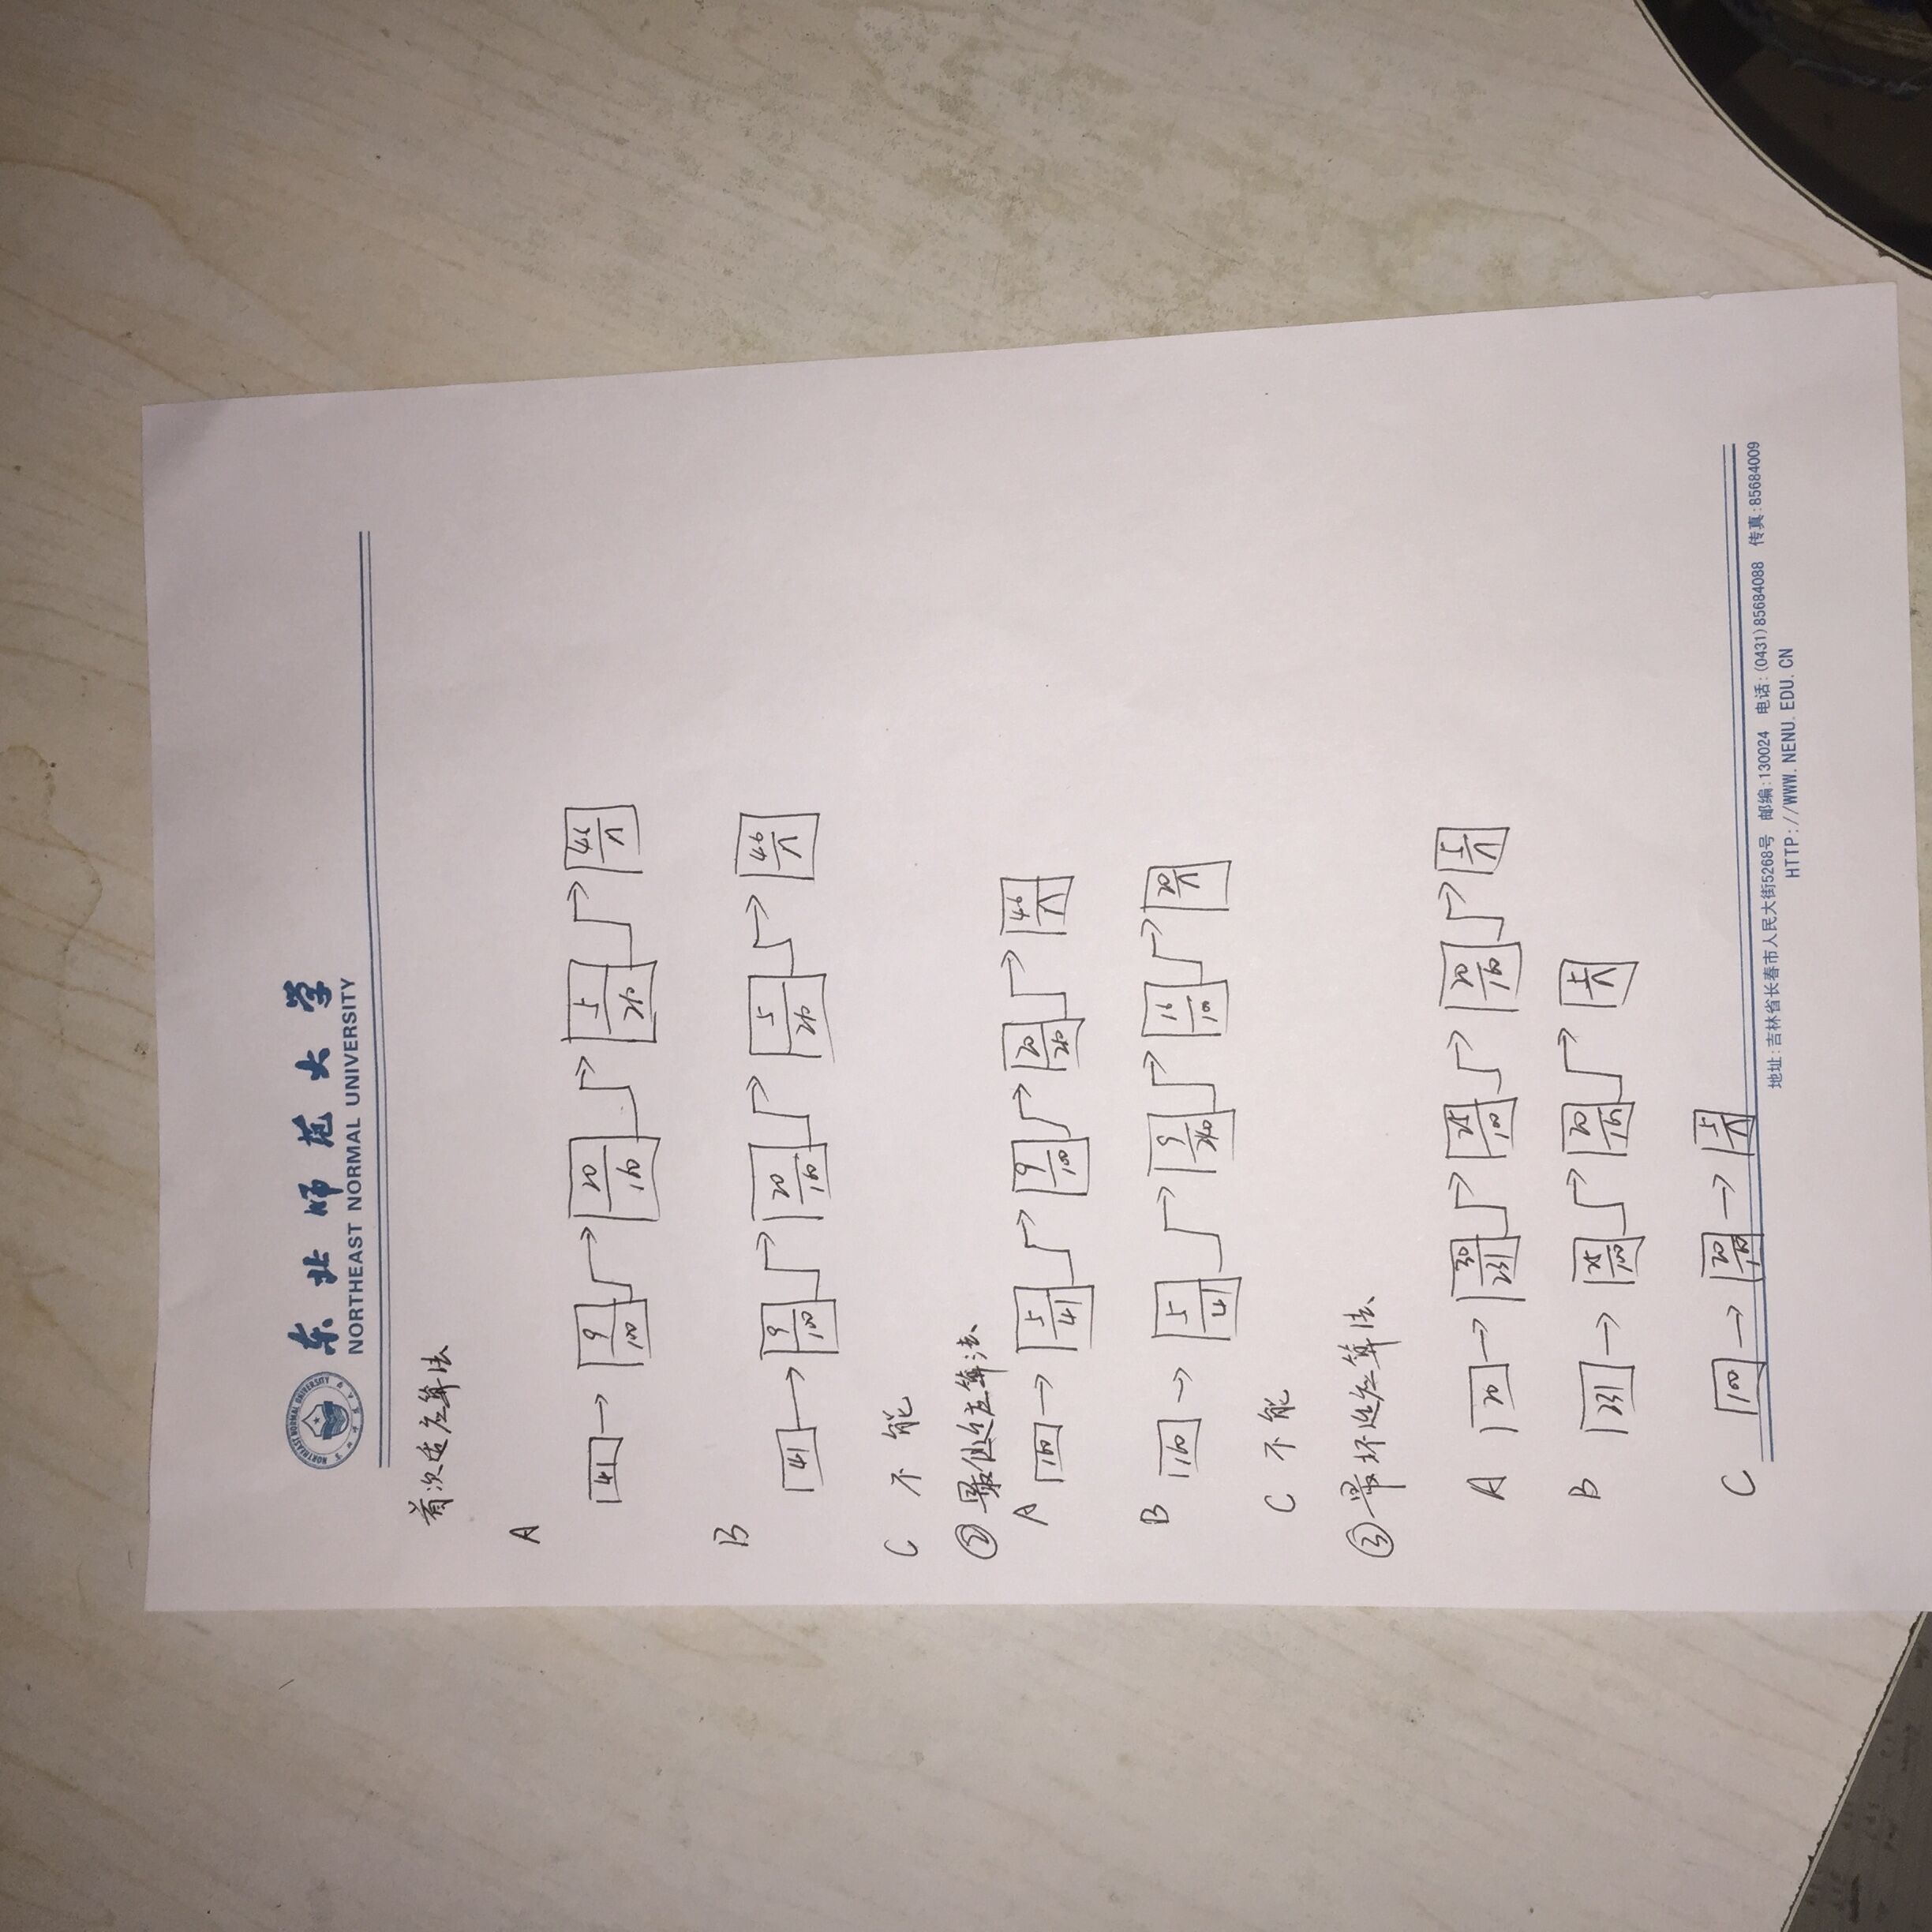 东北师范大学
NORTHEAST NORMAL UNIVERSITY
首次适应算法
A
41 → 9/100 → 20/160 → 5/210 → 46/∧
B
41 → 9/100 → 20/160 → 5/210 → 46/∧
C 不能
② 最佳适应算法
A 160 → 5/41 → 9/100 → 20/210 → 46/∧
B 160 → 5/41 → 9/210 → 16/100 → 20/∧
C 不能
③ 最坏适应算法
A 20 → 30/231 → 25/100 → 20/160 → 5/∧
B 231 → 25/100 → 20/160 → 5/∧
C 100 → 20/160 → 5/∧
地址:吉林省长春市人民大街5268号 邮编:130024 电话:(0431)85684088 传真:85684009
HTTP://WWW.NENU.EDU.CN